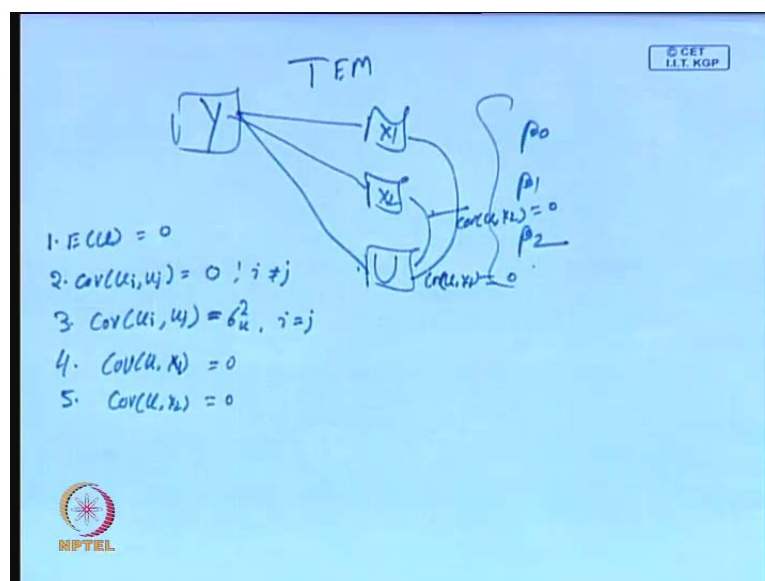 TEM
© CET
I.I.T. KGP
Y
X1
X2
U
β0
β1
β2
cov(u, x2) = 0
cov(u, x1) = 0
1. E(U) = 0
2. cov(ui, uj) = 0 ; i ≠ j
3. Cov(ui, uj) = σ²u, i = j
4. COV(u, x1) = 0
5. Cov(u, x2) = 0
NPTEL